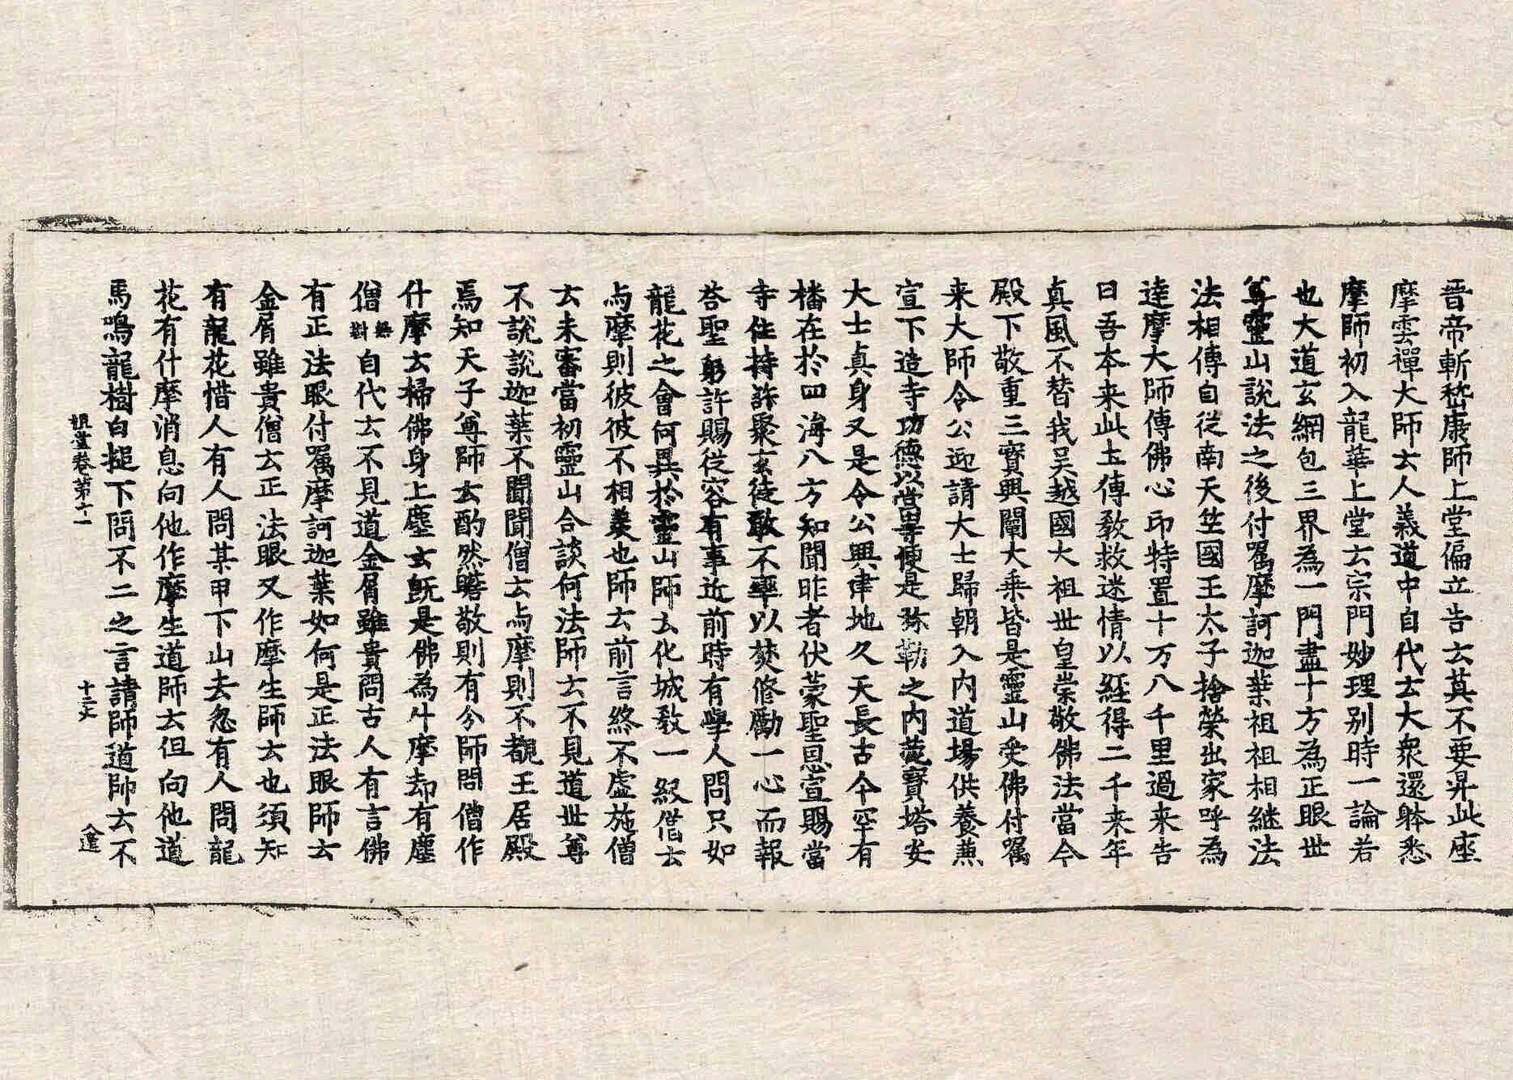 晋帝斬嵇康師上堂偏立告云莫不要昇此座
摩雲禪大師云人義道中自代云大衆還躰悉
摩師初入龍華上堂云宗門妙理别時一論若
也大道玄網包三界為一門盡十方為正眼世
尊靈山說法之後付囑摩訶迦葉祖祖相継法
法相傳自從南天竺國王太子捨榮出家呼為
達摩大師傳佛心印特置十万八千里過来告
曰吾本来此土傳教救迷情以経得二千来年
真風不替我吴越國大祖世皇崇敬佛法當今
殿下敬重三寳興闡大乗皆是靈山受佛付囑
来大師令公迎請大士歸朝入内道場供養蕉
宣下造寺功德以當畢便是弥勒之内菀寳塔安
大士真身又是令公興建地久天長古今罕有
播在於四海八方知聞昨者伏蒙聖恩宣賜當
寺住持許聚玄徒敢不率以焚修勵一心而報
荅聖躬許賜從容有事近前時有學人問只如
龍花之會何異於靈山師云化城教一級僧云
与摩則彼彼不相羡也師云前言終不虚施僧
云未審當初靈山合談何法師云不見道世尊
不說說迦葉不聞聞僧云与摩則不覩王居殿
焉知天子尊師云酌然瞻敬則有分師問僧作
什摩云掃佛身上塵云旣是佛為什摩却有塵
僧無對自代云不見道金屑雖貴問古人有言佛
有正法眼付囑摩訶迦葉如何是正法眼師云
金屑雖貴僧云正法眼又作摩生師云也須知
有龍花惜人有人問某甲下山去忽有人問龍
花有什摩消息向他作摩生道師云但向他道
馬鳴龍樹白搥下問不二之言請師道師云不
祖堂卷第十一 十三丈